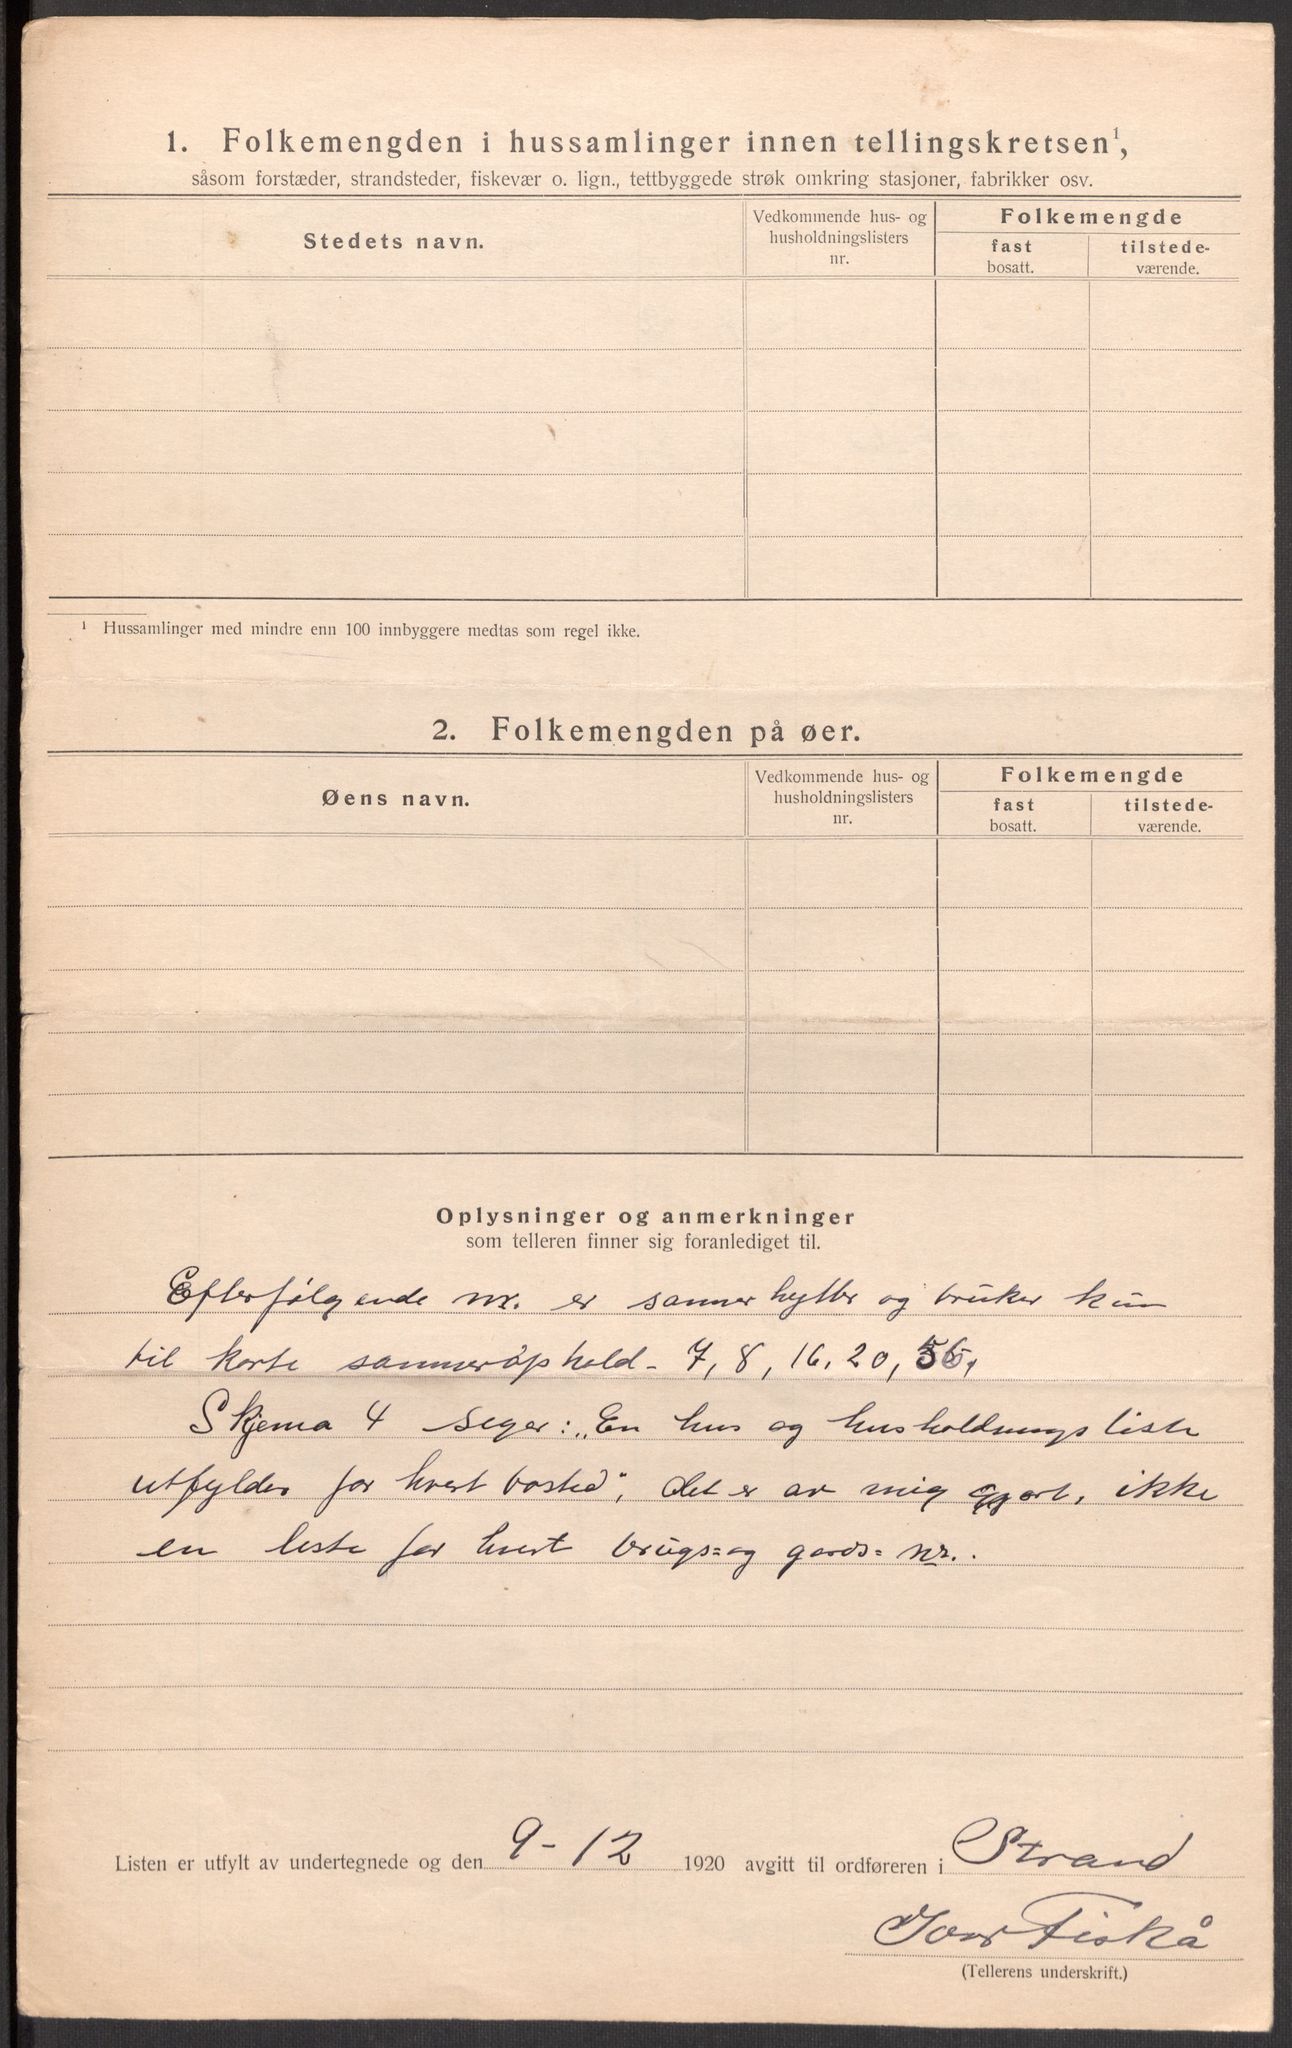 1. Folkemengden i hussamlinger innen tellingskretsen¹,
såsom forstæder, strandsteder, fiskevær o. lign., tettbyggede strøk omkring stasjoner, fabrikker osv.
Stedets navn.
Vedkommende hus- og
husholdningslisters
nr.
Folkemengde
fast
bosatt.
tilstede-
værende.
¹ Hussamlinger med mindre enn 100 innbyggere medtas som regel ikke.
2. Folkemengden på øer.
Øens navn.
Vedkommende hus- og
husholdningslisters
nr.
Folkemengde
fast
bosatt.
tilstede-
værende.
Oplysninger og anmerkninger
som telleren finner sig foranlediget til.
Efterfølgende nr. er sommerhytter og bruker kun
til korte sommerophold - 7, 8, 16, 20,
Skjema 4 seger: „En hus og husholdningsliste
utfyldes for hvert bosted", det er av mig gjort, ikke
en liste for hvert brugs= og gards= nr..
Listen er utfylt av undertegnede og den 9-12 1920 avgitt til ordføreren i Strand
Fiskå
(Tellerens underskrift.)